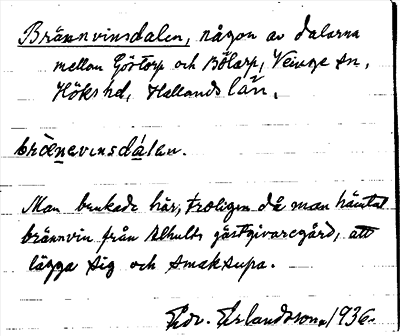 Brännvinsdalen, någon av dalarna
mellan Göstorp och Bölarp, Veinge sn,
Höks hd, Hallands län.
brä̀nevinsdá̀len.
Man brukade här, troligen då man hämtat
brännvin från Alhults gästgivaregård, att
lägga sig och smaksupa.
Edv. Erlandsson, 1936.